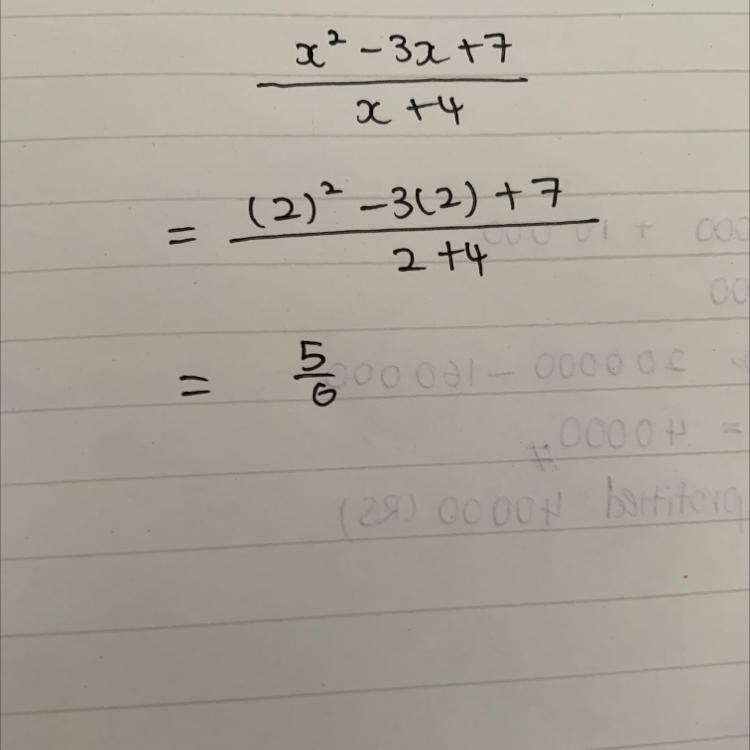 x² - 3x + 7
x + 4
= (2)² - 3(2) + 7
2 + 4
= 5
6